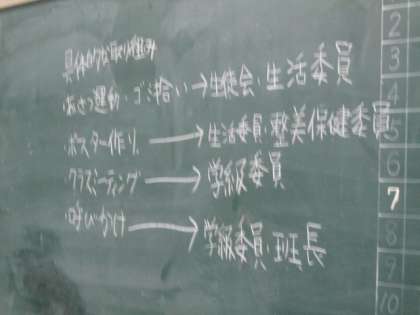 具体的な取り組み
・あいさつ運動・ゴミ拾い→生徒会・生活委員
・ポスター作り→生活委員・整美保健委員
・クラスミーティング→学級委員
・呼びかけ→学級委員・班長
2
3
4
5
6
7
8
9
10